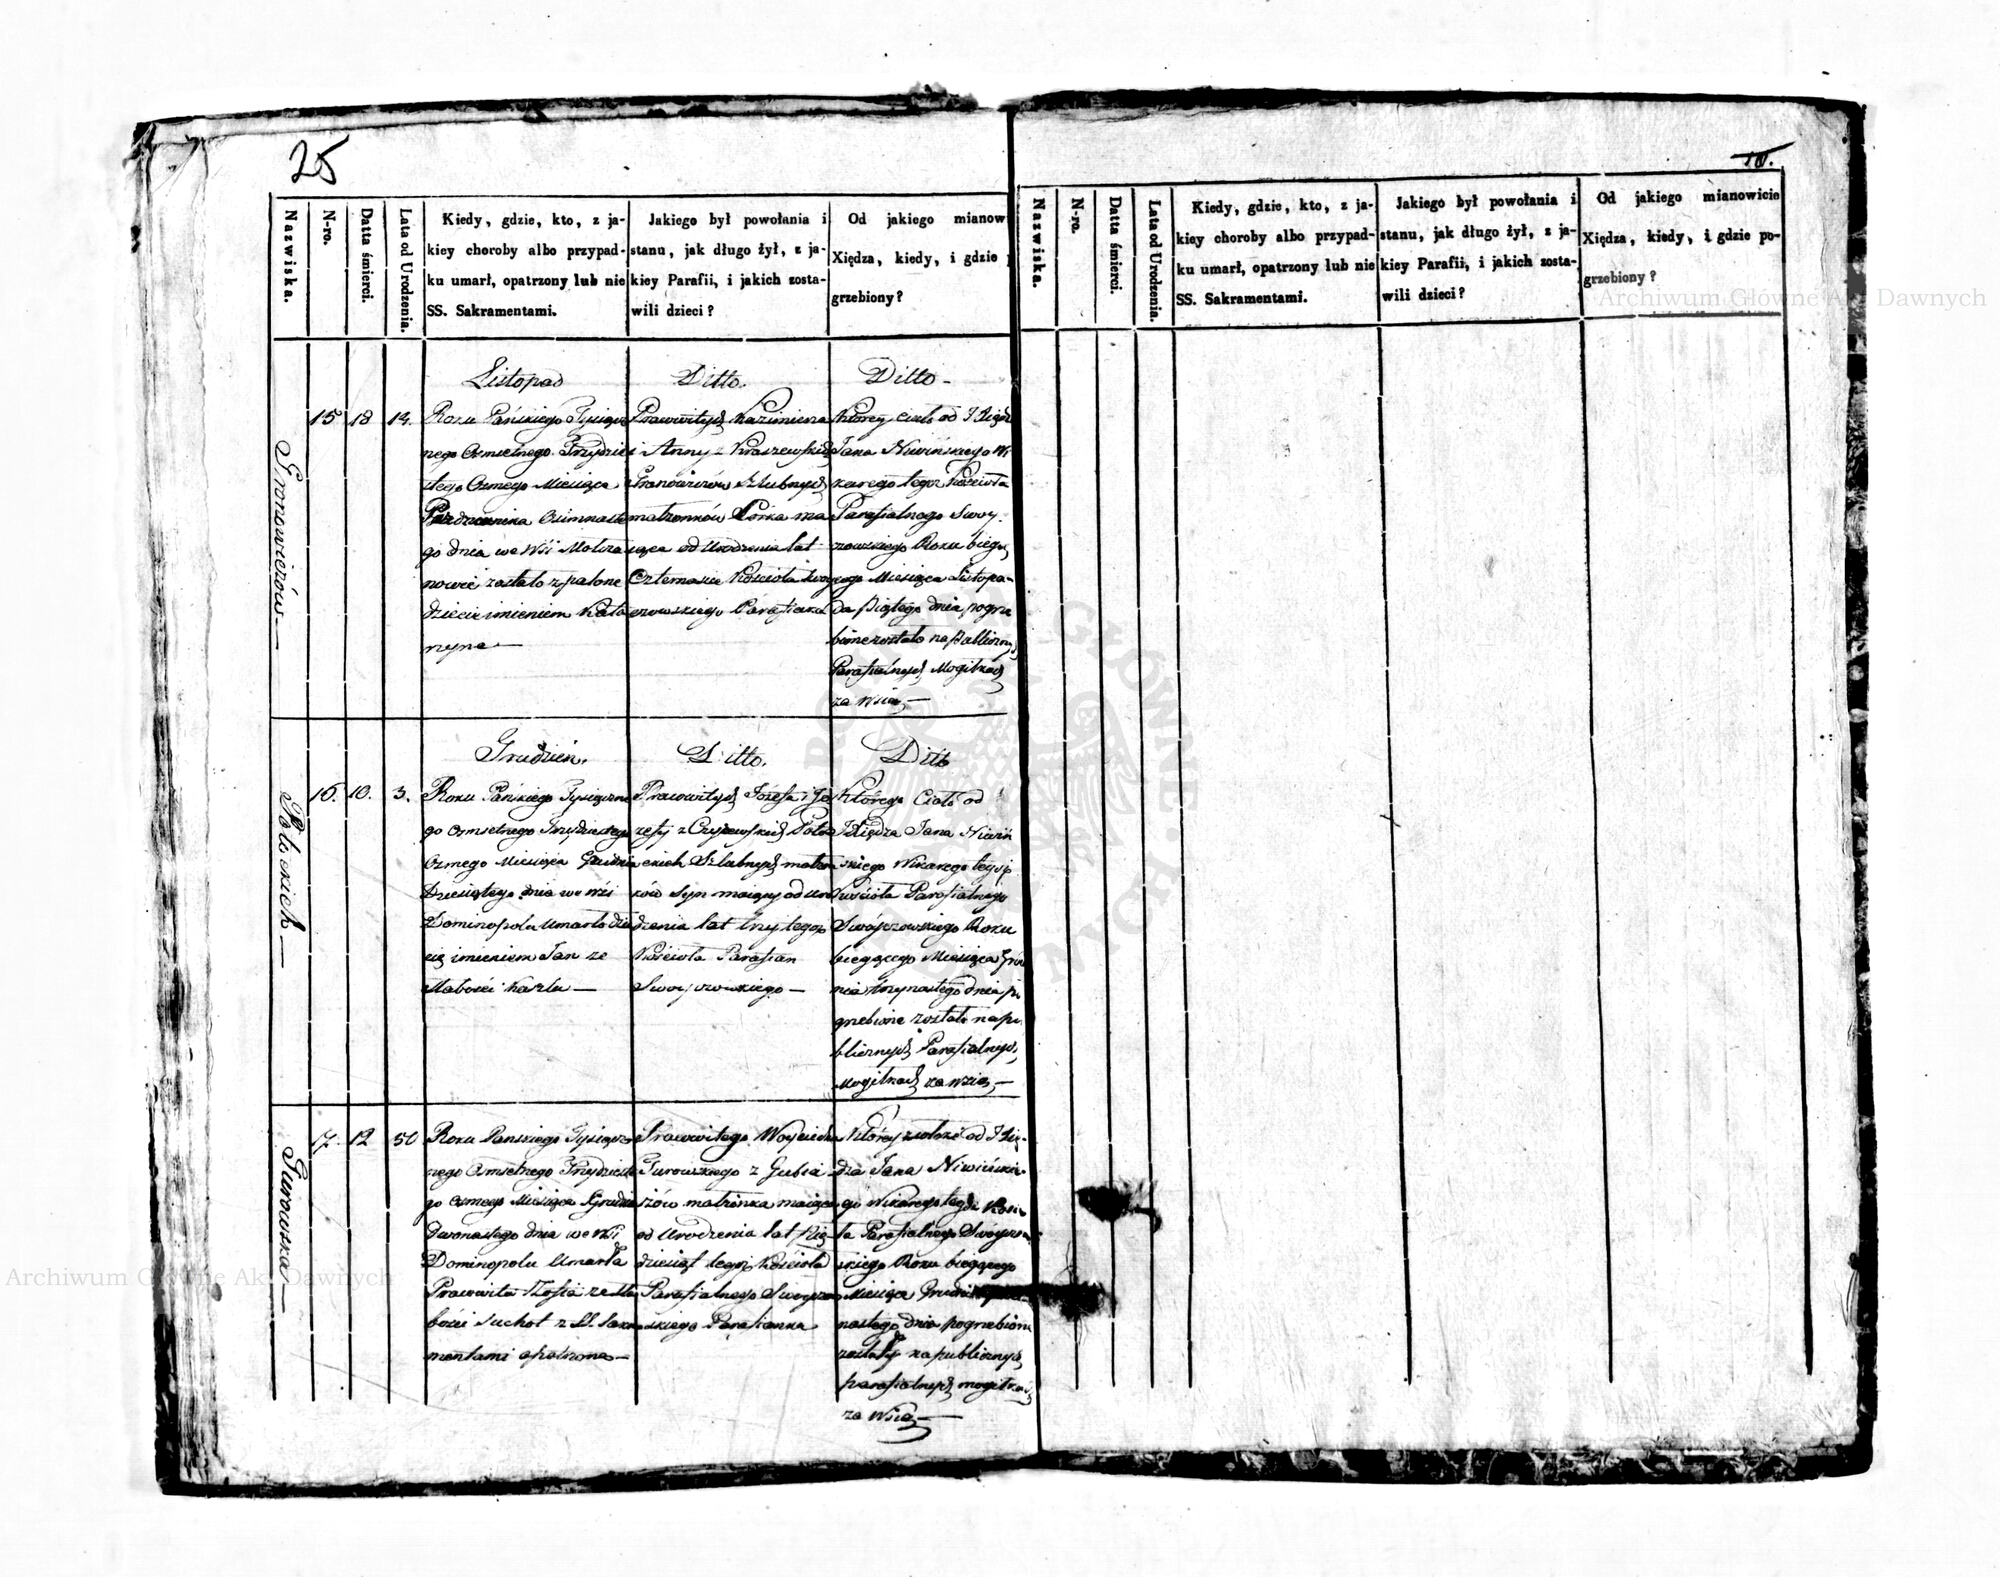 25
Nazwiska.
N-ro.
Datta śmierci.
Lata od Urodzenia.
Kiedy, gdzie, kto, z ja-
kiey choroby albo przypad-
ku umarł, opatrzony lub nie
SS. Sakramentami.
Jakiego był powołania i
stanu, jak długo żył, z ja-
kiey Parafii, i jakich zosta-
wili dzieci?
Od jakiego mianow
Xiędza, kiedy, i gdzie
grzebiony?
Gronowiczów
15
18
14.
Listopad
Roku Pańskiego Tysiącz
nego Osmsetnego Trzydzie
stego Osmego Miesiąca
Pazdziernika Osimnaste
go dnia we Wsi
zostało spalone
dziecie imieniem Kata
rzyna
Ditto.
Prawowitych Kazimierza
i Anny z Kraszewskich
Gronowiczów Szlubnych
małżonków Córka ma
iąca od Urodzenia lat
Czternascie Kościoła Swoy
czowskiego Parafianka
Ditto
Którey Ciało od Xiędz
Jana Niwińskiego Wi
karego tegoż Kościoła
Parafialnego Swoy.
czowskiego Roku biegą
cego Miesiąca Listopa-
da Piątego dnia pogrze
bione zostało na Publicznych
Parafialnych Mogiłkach
za Wsią
Połockich
16.
10.
3.
Grudzień.
Roku Pańskiego Tysiączne
go Osmsetnego Trzydziestego
Osmego Miesiąca Grudnia
Dziesiątego dnia we wsi
Dominopolu Umarło dzie
cię imieniem Jan ze
słabości kaszlu
Ditto.
Prawowitych Józefa i Te
resy z Czyżewskich Poło
ckich Szlubnych małżon
ków Syn maiący od Uro
dzenia lat trzy tegoż
Kościoła Parafian
Swoyczowskiego
Ditto
Którego Ciało od
Xiędza Jana Niwiń
skiego Wikarego tegoż
Kościoła Parafialnego
Swóyczowskiego Roku
biegącego Miesiąca Gru
nia trzynastego dnia po
grzebione zostało na pu
blicznych Parafialnych
Mogiłkach za wsią
Gurowska
17.
12
50
Roku Panskiego Tysiącz
nego Osmsetnego Trzydzieste
go Osmego Miesiąca Grudnia
Dwonastego dnia we wsi
Dominopolu Umarła
Prawowita Zofia ze sła
bości Suchot z SS. Sakra
mentami opatrzona
Prawowitego Woyciecha
Gurowskiego z Gubia
szów małżonka maiąca
od Urodzenia lat Pię-
dziesiąt tegoż Kościoła
Parafialnego Swoyczow
skiego Parafianka
Którey zwłoki od Xię-
dza Jana Niwińskie
go Wikarego tegoż Kościo
ła Parafialnego Swóyczow
skiego Roku biegącego
Miesiąca Grudnia
nastego dnia pogrzebione
zostały na publicznych
parafialnych mogiłkach
za Wsią
Nazwiska.
N-ro.
Datta śmierci.
Lata od Urodzenia.
Kiedy, gdzie, kto, z ja-
kiey choroby albo przypad-
ku umarł, opatrzony lub nie
SS. Sakramentami.
Jakiego był powołania i
stanu, jak długo żył, z ja-
kiey Parafii, i jakich zosta-
wili dzieci?
Od jakiego mianowicie
Xiędza, kiedy, i gdzie po-
grzebiony?
Archiwum Główne Akt Dawnych
Archiwum Główne Akt Dawnych